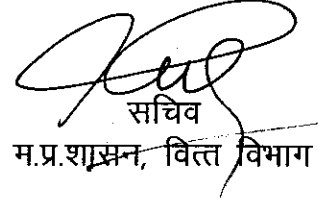 सचिव
म.प्र.शासन, वित्त विभाग